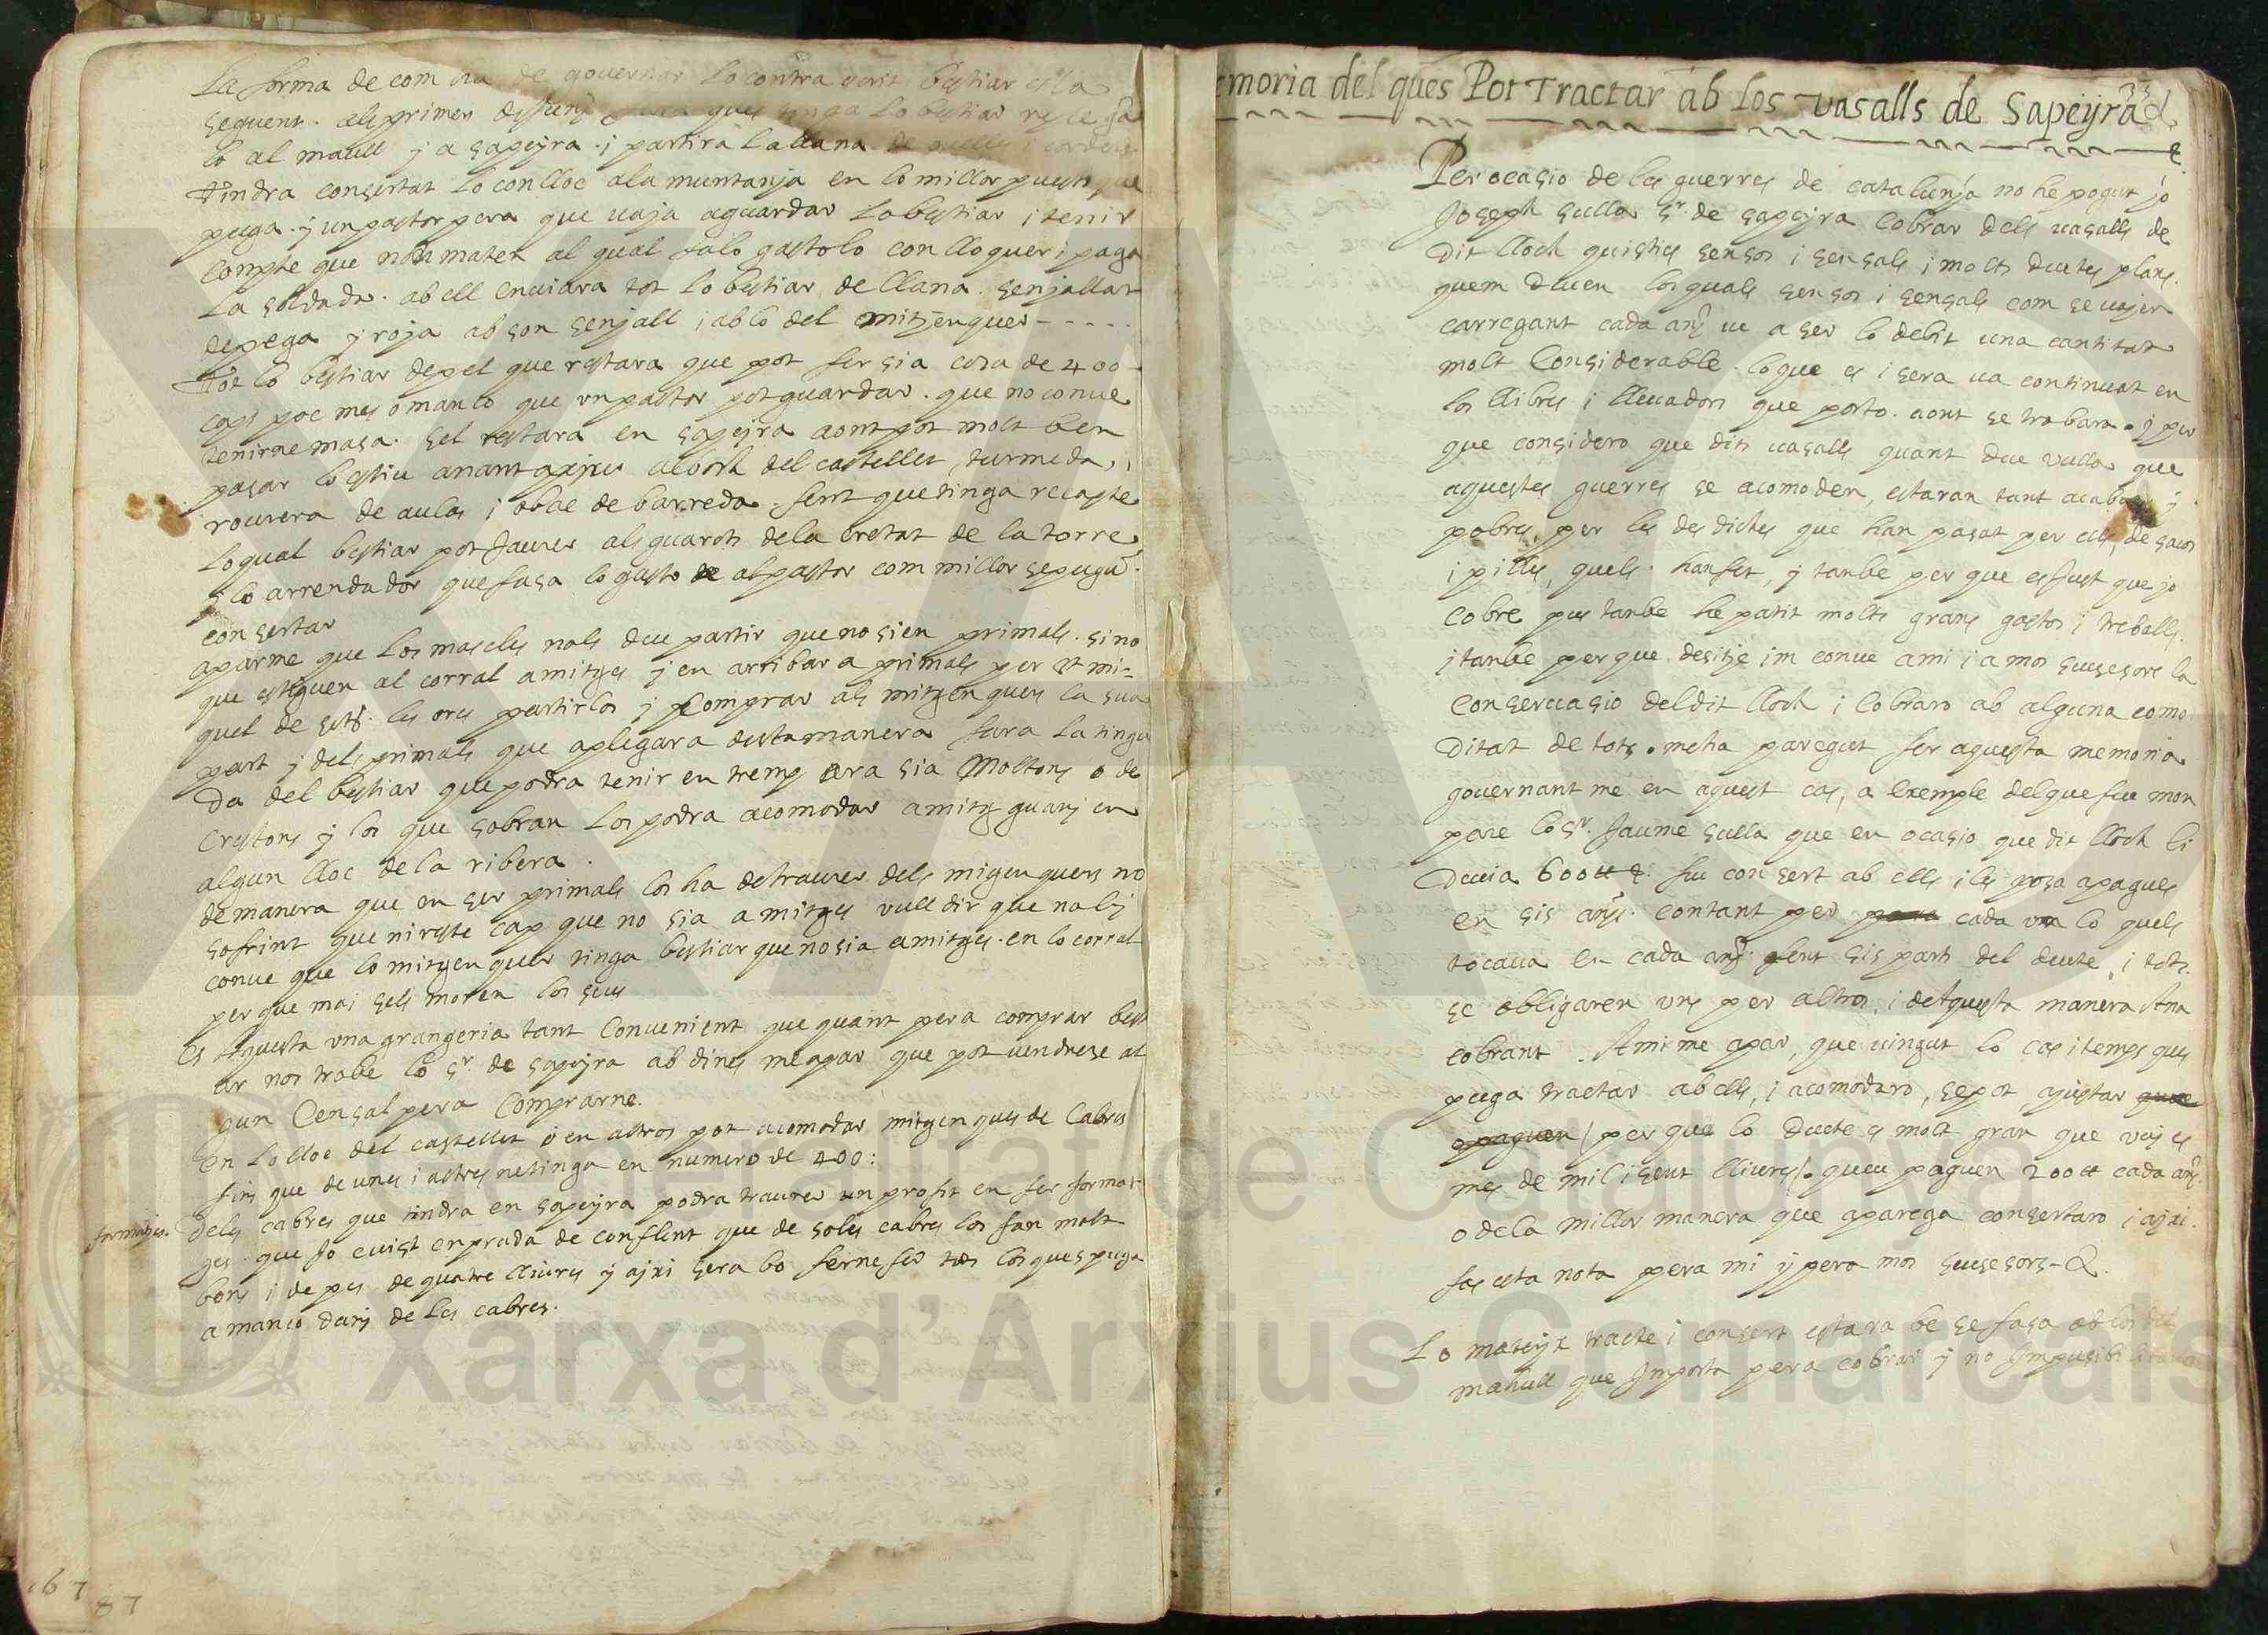 La forma de com ha de governar lo contra dit bestiar es la
seguent. als primers de juny fara ques tinga lo bestiar
lo al maull j a sapeyra. i partira la llana de ovelles i corders
tindra consertat lo conlloc a la muntanja en lo millor puesto que
puga. j un pastor pera que vaja aguardar lo bestiar i tenir
compte que non maten al qual fa lo gasto lo conlloguer i paga
la soldada. ab ell enviara tot lo bestiar de llana. senjallat
de pega j roja ab son senjall i ab lo del mitjenquer - - - - -
Tot lo bestiar de pel que restara que pot ser sia cosa de 400
caps poc mes o manco que un pastor pot guardar. que no conve
tenirne masa. sel restara en sapejra a ont pot molt ben
pasar lo estiu anant
rourera de aulas i obac de barreda. sent que tinga recapte
lo qual bestiar pot jaurer als quarts de la eretat de la torre,
j lo arrendador que fasa lo gasto al pastor com millor se puga
consertar
aparme que los mascles nols deu partir que no sien primals. sino
que estiguen al corral a mitges j en arribar a primals per st mi-
quel de setb. les ores partirlos j comprar als mitjenquers la sua
part j dels primals que aplegara desta manera fara la tingu
da del bestiar que podra tenir en tremp ara sia moltons o de
crestons j los que sobran los podra acomodar a mitg guanj en
algun lloc de la ribera.
de manera que en ser primals los ha de traurer dels mitjenquers no
sofrint que ni reste cap que no sia a mitges vull dir que no lj
conve que lo mitjenquer tinga bestiar que no sia a mitges. en lo corral
per que mai sels moren los seus
Es aquesta una grangeria tant convenient que quant pera comprar besti
ar nos trobe lo sr. de sapejra ab dines me apar que pot vendrese al
gun censal pera comprarne.
en lo lloc del castellet o en altros pot acomodar mitjenques de cabres
fins que de unes i altres ne tinga en numero de 400:
formatjes. dels cabres que tindra en sapeyra podra traurer un profit en fer format-
ges. que jo e vist en prada de conflent que de soles cabres los fan molt
bons i de pes de quatre lliures j ajxi sera bo ferne fer tots los ques puga
a manco danj de les cabres.
67 87
35
emoria del ques Pot Tractar ab los vasalls de Sapeyra d.
Per ocasio de les guerres de catalunja no he pogut jo
Joseph sulla sr. de sapejra cobrar dels vasalls de
Dit lloch quisties sensos i sensals i molts deutes plans.
quem deuen los quals sensos i sensals com se vajen
carregant cada anj ve a ser lo debit una cantitat
molt considerable. lo que es i sera va continuat en
los llibres i llevadors que porto. aont se trobara. j per
que considero que dits vasalls quant deu vulla que
aquestes guerres se acomoden, estaran tant acabats j
pobres, per les desdiches que han pasat per ells, de sacos
i pilles, quels han fet, j tanbe per que es just que jo
cobre pus tanbe he patit molts grans gastos i treballs.
j tanbe per que desitje i m conve a mi i a mos susesors la
conservasio del dit lloch i cobraro ab alguna como
ditat de tots. me ha paregut fer aquesta memoria
governant me en aquest cas, a exemple del que feu mon
pare lo sr. Jaume sulla que en ocasio que dit lloch li
Devia 600 ll feu consert ab ells i les posa a pagues
en sis anjs. contant per cada un lo quels
tocava en cada anj. fent sis parts del deute, i tots
se obligaren uns per altros, i de aquesta manera
cobrant. Ami me apar, que vingut lo cas i temps ques
puga tractar ab ells, i acomodaro, se pot ajustar que
opaguen / per que lo deute es molt gran que vuj es
mes de mil i sent lliures /. queu paguen 200 ll cada anj.
o de la millor manera que aparega consertaro i ajxi
fas esta nota pera mi y pera mos susesors - &.
Lo mateix tracte i consert estara be se fasa ab los del
mahull que Importa pera cobrar y no Imposibilitar